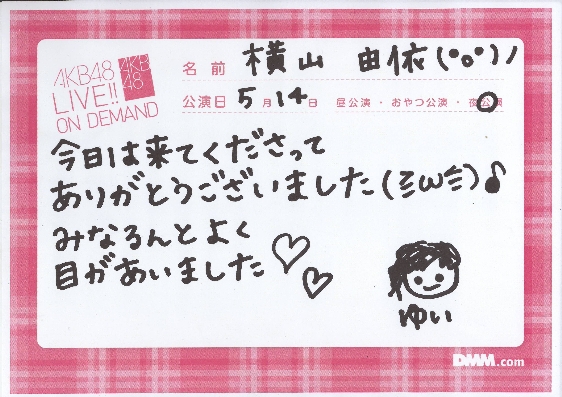 AKB48
LIVE!!
ON DEMAND
AKB
48
名前 横山 由依(°o°)ノ
公演日 5月14日 昼公演・おやつ公演・夜公演
今日は来てくださって
ありがとうございました(ミω彡)♪
みなるんとよく
目があいました♡♡
ゆい
DMM.com